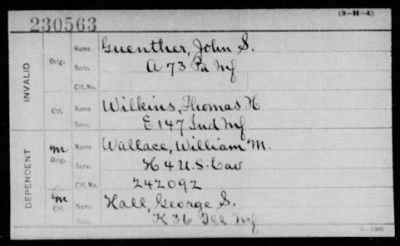 (3-H-4)
230563
INVALID
Orig.
Name
Guenther, John S.
Serv.
A 73 Pa Inf
Ctf. No.
Ctf.
Name
Wilkins, Thomas H
Serv.
E 147 Ind Inf
DEPENDENT
m
Orig.
Name
Wallace, William M.
Serv.
H 4 U.S. Cav
Ctf. No.
242092
m
Ctf.
Name
Hall, George S.
K 36 Ill Inf